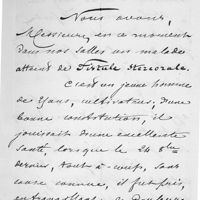 Nous avons,
Messieurs, en ce moment
dans nos salles un malade
atteint de Fistule stercorale.
C'est un jeune homme
de ans, cultivateur, d'une
bonne constitution, il
jouissait d'une excellente
santé, lorsque le 24
dernier, tout-à-coup, sans
cause connue, il fut pris,
douleurs